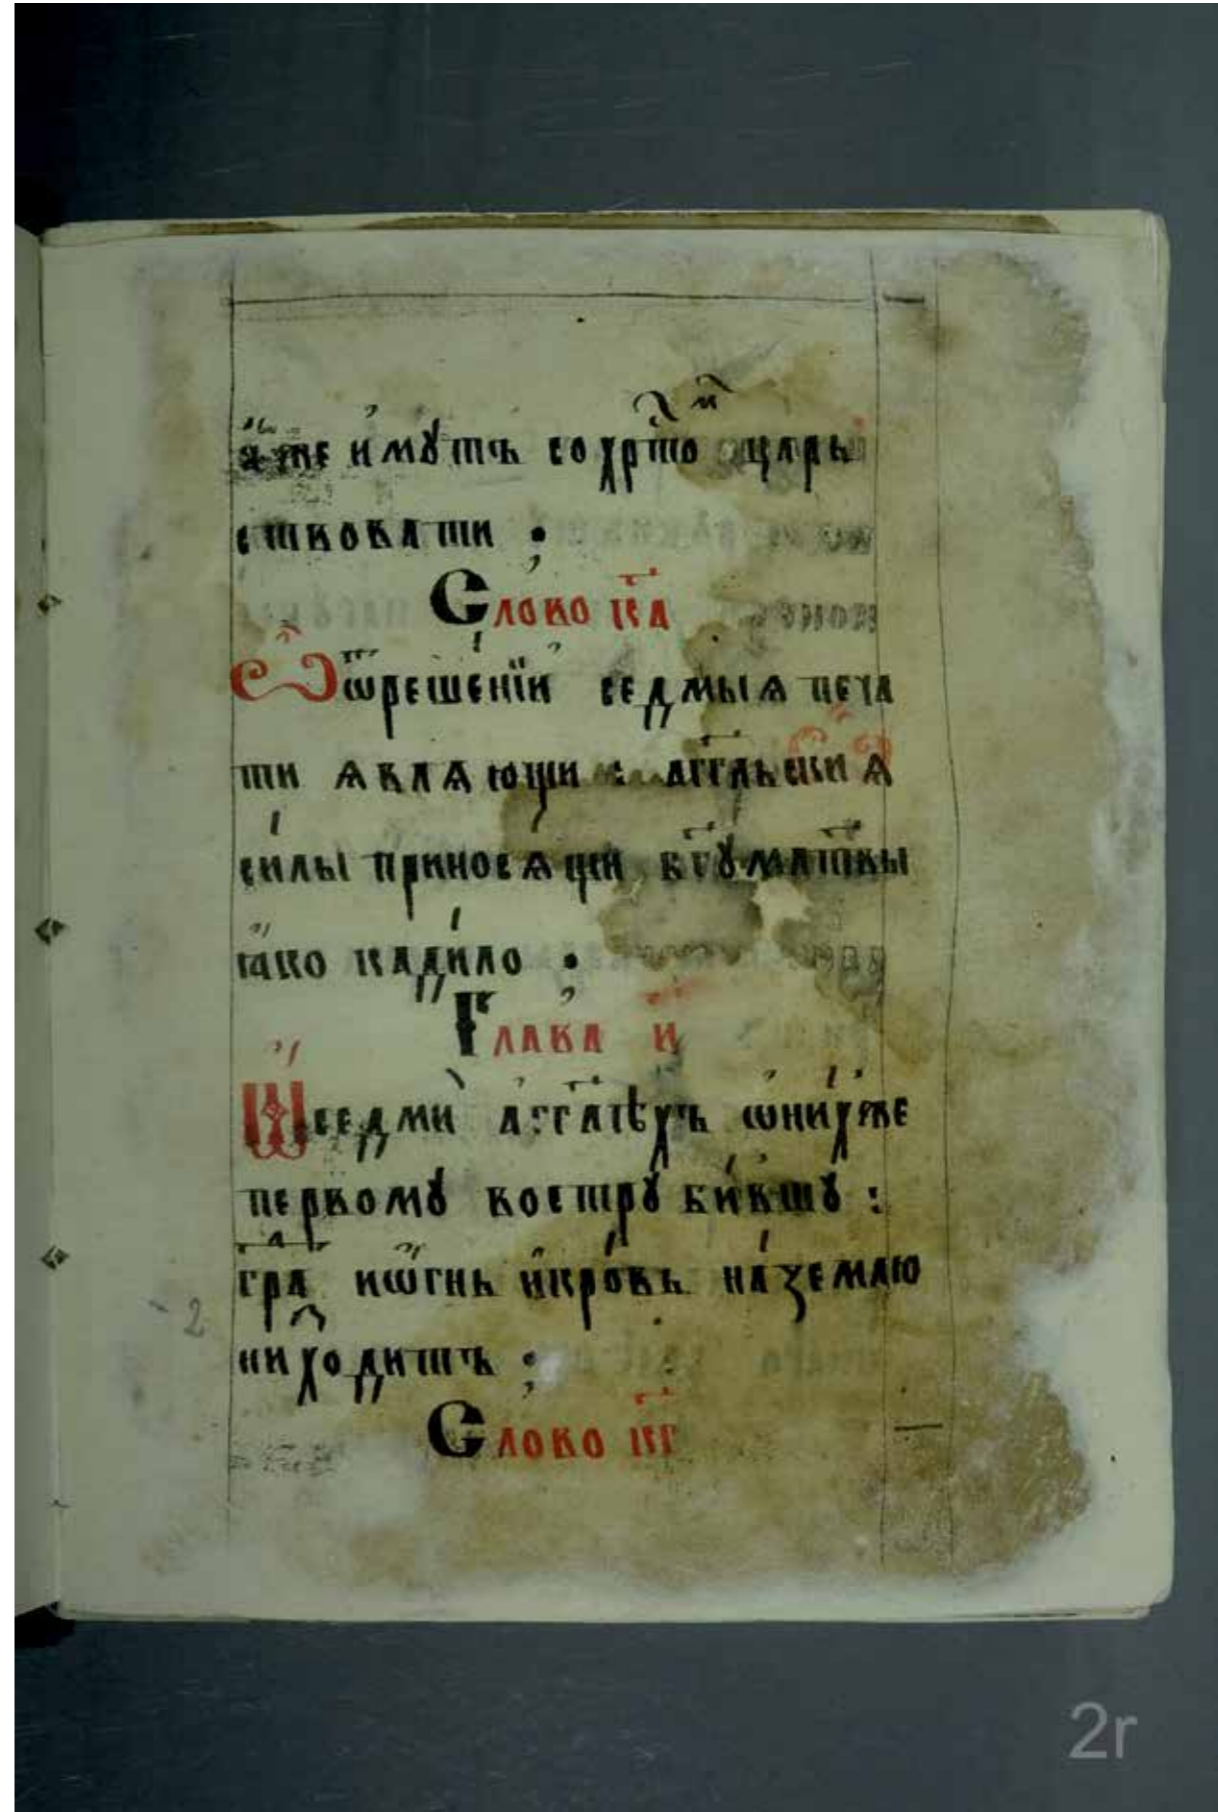 ꙗ҆же и҆мꙋтъ со хрⷭ҇то́мъ царь
ствовати :
Слово к҃а
Ѿ ѿрѣшенїи седмыѧ печа
ти ѧвлѧющи : а҆гг҃льскиѧ
си́лы приносѧщи бг҃ꙋ мл҃твы
ꙗ҆ко кади́ло :
Глава и҃
Ѡ҆ седми а҆гг҃лѣхъ ѿ ни́хже
первомꙋ вострꙋби́вшꙋ :
гра́дъ и ѻ҆гнь и҆ кро́вь на́ землю
низходитъ :
Слово к҃г
2
2r